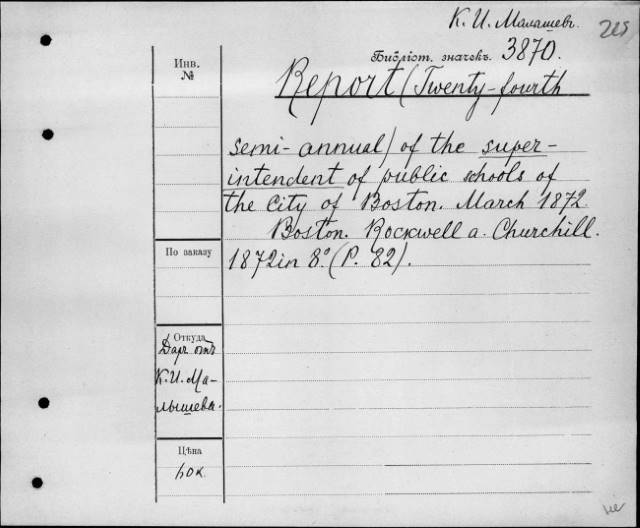 К. И. Малашевъ
Библіот. значекъ. 3870.
Инв.
№
Report (Twenty-fourth
semi-annual) of the super-
intendent of public schools of
the City of Boston. March 1872
Boston. Rockwell a. Churchill.
1872 in 8º. (P. 82).
По заказу
Откуда
Даръ отъ
К. И. Ма-
лышева.
Цѣна
60 к.